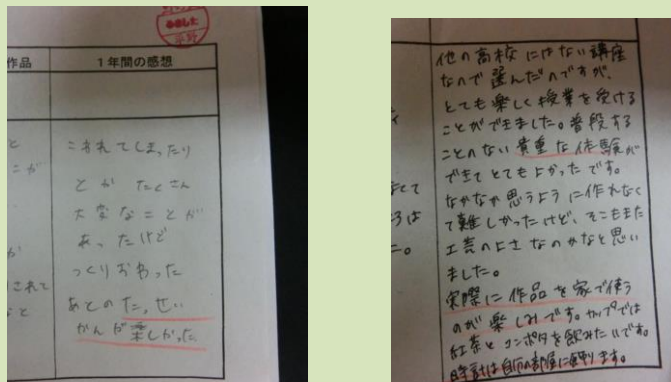 みました
平野
作品
1年間の感想
と
こが
か
されて
なと
こわれてしまったり
とか たくさん
大変なことが
あったけど
つくりおわった
あとのたっせい
かんが楽しかった
他の高校にはない講座
なので選んだのですが、
とても楽しく授業を受ける
ことができました。普段する
ことのない貴重な体験が
できてとてもよかったです。
なかなか思うように作れなく
て難しかったけど、そこもまた
工芸のよさなのかなと思い
ました。
実際に作品を家で使う
のが楽しみです。カップでは
紅茶とコンポタを飲みたいです。
時計は自分の部屋に飾ります。